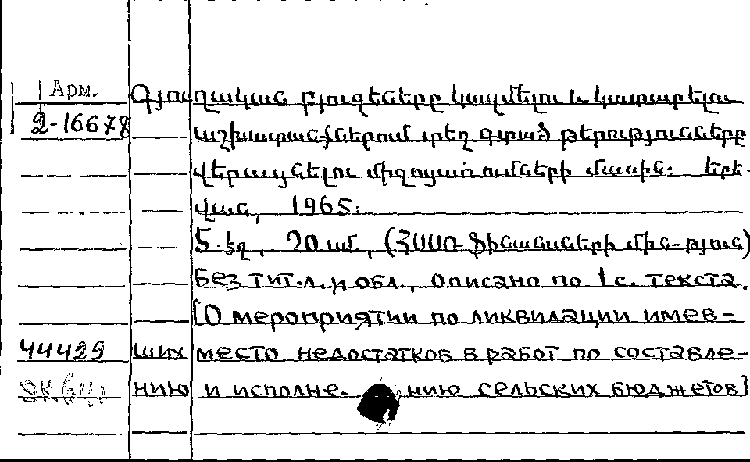 Арм. Գյուղական բյուջեները կազմելու և կատարելու
2-16678 աշխատանքներում տեղ գտած թերությունները
վերացնելու միջոցառումների մասին: Երե-
վան, 1965.
5 էջ, 20 սմ, (ՀՍՍՌ Ֆինանսների մին-թյուն)
Без тит.л. и обл., описано по 1 с. текста.
[О мероприятии по ликвидации имев-
44429 ших место недостатков в работ по составле-
нию и исполне. нию сельских бюджетов]